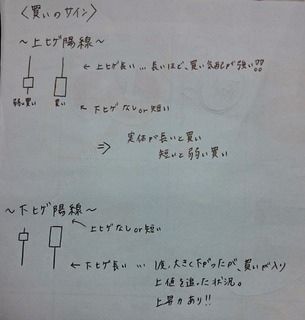 〈買いのサイン〉
～上ヒゲ陽線～
←上ヒゲ長い…長いほど、買い気配が強い??
弱い買い 買い
←下ヒゲなしor短い
⇒ 実体が長いと買い
短いと弱い買い
～下ヒゲ陽線～
上ヒゲなしor短い
←下ヒゲ長い… 1度、大きく下がったが、買いが入り
上値を追った状況。
上昇力あり!!